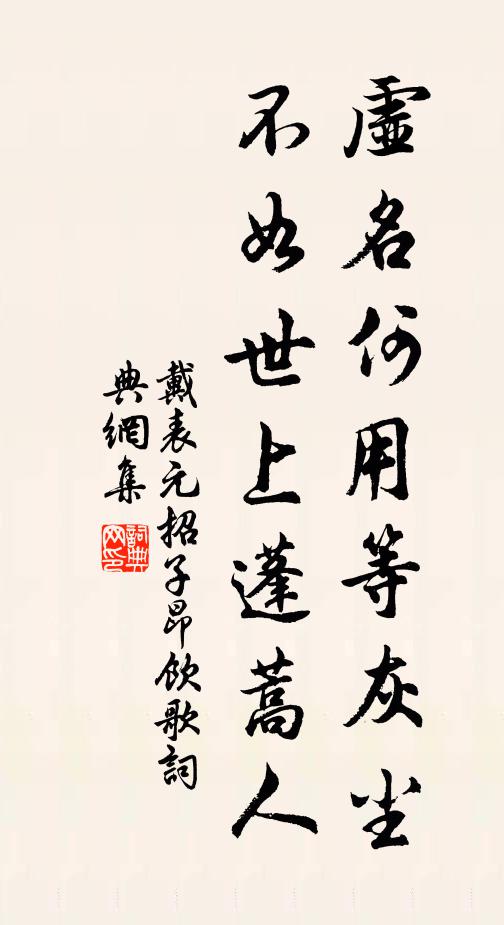 虛名何用等灰尘
不如世上蓬蒿人
戴表元招子昂飲歌詞
典網集
詞典網印